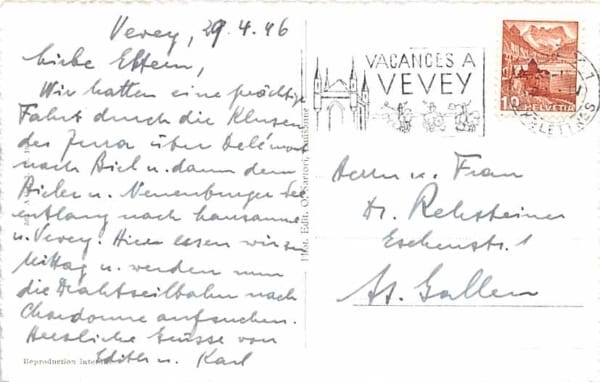 Vevey, 29.4.46
Liebe Eltern,
Wir hatten eine prächtige
Fahrt durch die Klusen
des Jura über Delémont
nach Biel u. dann dem
Bieler u. Neuenburger See
entlang nach Lausanne
u. Vevey. Hier essen wir zu
Mittag u. werden nun
die Drahtseilbahn nach
Chardonne aufsuchen.
Herzliche Grüsse von
Edith u. Karl
Reproduction
Phot. Edit. O. Sartori,
VACANCES A
VEVEY
10
HELVETIA
Herrn u. Frau
Dr. Rehsteiner
Eschenstr. 1
St. Gallen